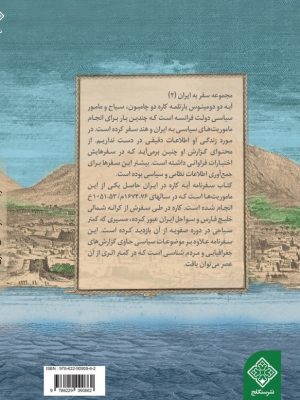 مجموعه سفر به ایران (۲)
آبه دو دومینوس بارتلمه کاره دو چامبون، سیاح و مامور
سیاسی دولت فرانسه است که چندین بار برای انجام
ماموریت‌های سیاسی به ایران و هند سفر کرده است. در
مورد زندگی او اطلاعات دقیقی در دست نداریم. از
محتوای گزارش او چنین برمی‌آید که در سفرهایش
اختیارات فراوانی داشته است. بیشتر این سفرها برای
جمع‌آوری اطلاعات نظامی و سیاسی بوده است.
کتاب سفرنامه آبه کاره در ایران حاصل یکی از این
ماموریت‌ها است که در سالهای ۷۴-۱۶۷۲م/ ۵۳-۱۰۵۱ خ
انجام شده است. کاره در طی سفرش از کرانه شمالی
خلیج فارس و سواحل ایران عبور کرده، مسیری که کمتر
سیاحی در دوره صفویه از آن بازدید کرده است. این
سفرنامه علاوه بر موضوعات سیاسی حاوی گزارش‌های
جغرافیایی و مردم شناسی است که در کمتر اثری از آن
عصر می‌توان یافت.
نشر سنگلج